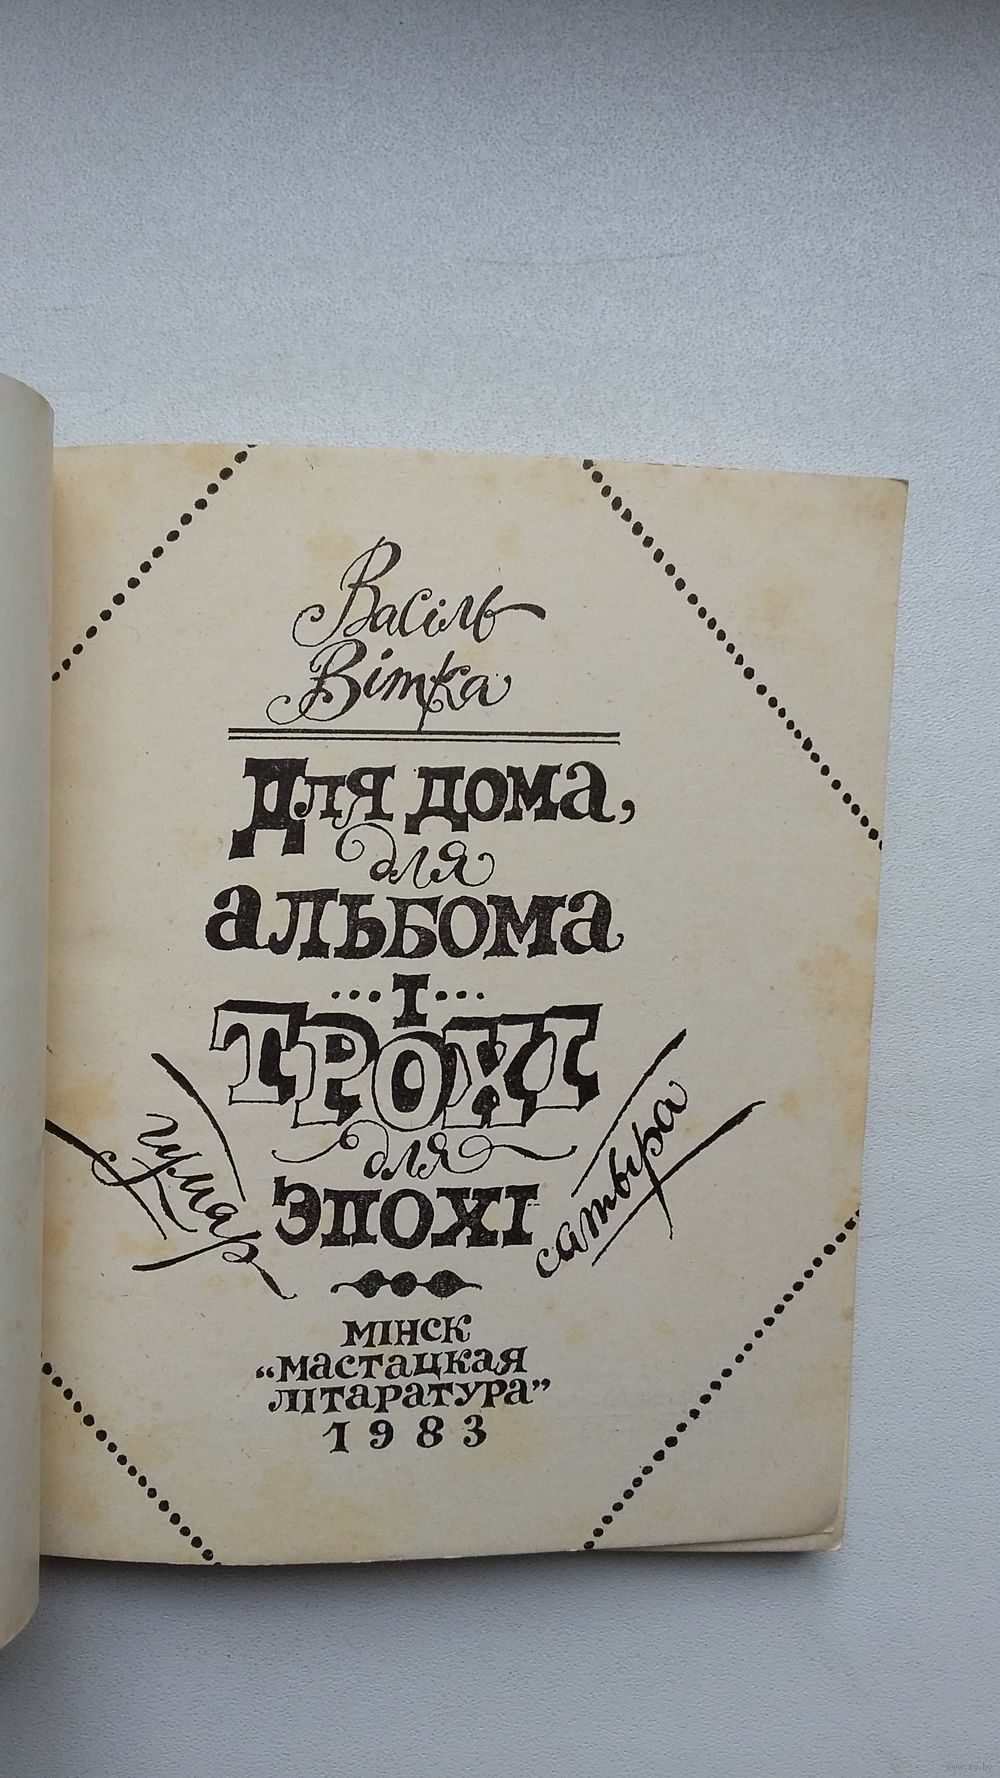 Васіль
Вітка
Для дома,
для
альбома
...і...
ТРОХІ
для
эпохі
гумар
сатыра
МІНСК
“МАСТАЦКАЯ
ЛІТАРАТУРА”
1983
www.ay.by